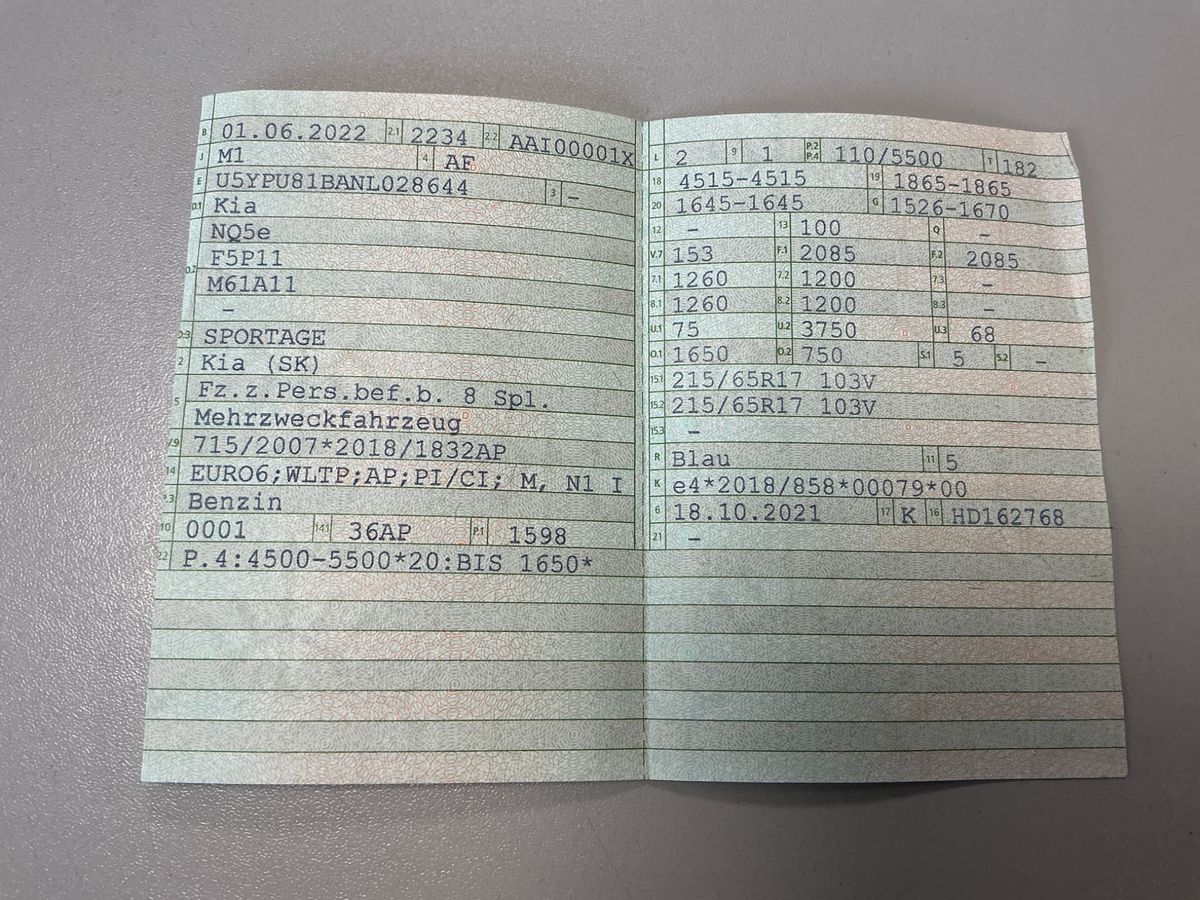 B 01.06.2022 2.1 2234 2.2 AAI00001X
J M1 4 AF
E U5YPU81BANL028644 3 –
D.1 Kia
NQ5e
D.2 F5P11
M61A11
–
D.3 SPORTAGE
2 Kia (SK)
5 Fz.z.Pers.bef.b. 8 Spl.
Mehrzweckfahrzeug
V.9 715/2007*2018/1832AP
14 EURO6;WLTP;AP;PI/CI; M, N1 I
P.3 Benzin
10 0001 14.1 36AP P.1 1598
22 P.4:4500-5500*20:BIS 1650*
L 2 9 1 P.2 P.4 110/5500 T 182
18 4515-4515 19 1865-1865
20 1645-1645 G 1526-1670
12 – 13 100 Q –
V.7 153 F.1 2085 F.2 2085
7.1 1260 7.2 1200 7.3 –
8.1 1260 8.2 1200 8.3 –
U.1 75 U.2 3750 U.3 68
O.1 1650 O.2 750 S.1 5 S.2 –
15.1 215/65R17 103V
15.2 215/65R17 103V
15.3 –
R Blau 11 5
K e4*2018/858*00079*00
6 18.10.2021 17 K 16 HD162768
21 –